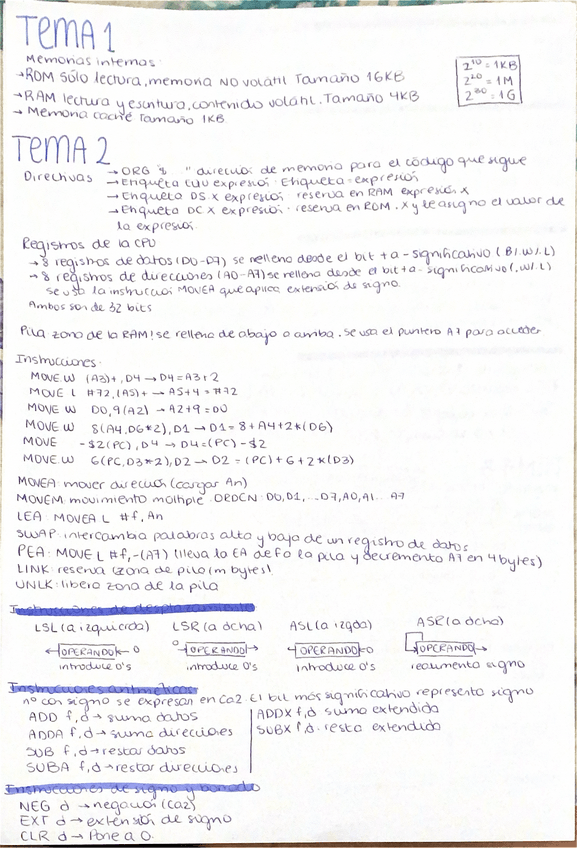 TEMA 1
Memorias internas:
→ROM sólo lectura, memoria NO volátil Tamaño 16KB
→RAM lectura y escritura, contenido volátil. Tamaño 4KB
→ Memoria caché Tamaño 1KB
2¹⁰ = 1KB
2²⁰ = 1M
2³⁰ = 1G
TEMA 2
Directivas → ORG "$ " dirección de memoria para el código que sigue
→ Etiqueta EQU expresión: Etiqueta = expresión
→ Etiqueta DS.X expresión: reserva en RAM expresión X
→ Etiqueta DC.X expresión: reserva en ROM .X y le asigno el valor de
la expresión
Registros de la CPU
→ 8 registros de datos (D0-D7) se rellena desde el bit + a - significativo (B/.W/.L)
→ 8 registros de direcciones (A0-A7) se rellena desde el bit + a - significativo (.W/.L)
se usa la instrucción MOVEA que aplica extensión de signo.
Ambos son de 32 bits
Pila zona de la RAM! se rellena de abajo a arriba. Se usa el puntero A7 para acceder
Instrucciones:
MOVE.W (A3)+, D4 → D4 = A3+2
MOVE L #72,(A5)+ → A5+4 = #72
MOVE W D0,9(A2) → A2+9 = D0
MOVE W 8(A4,D6*2),D1 → D1 = 8+A4+2*(D6)
MOVE -$2(PC),D4 → D4 = (PC)-$2
MOVE.W 6(PC,D3*2),D2 → D2 = (PC)+6+2*(D3)
MOVEA: mover dirección (cargar An)
MOVEM: movimiento múltiple. ORDEN: D0,D1,...D7,A0,A1...A7
LEA: MOVEA L #f, An
SWAP: intercambia palabras alta y baja de un registro de datos
PEA: MOVE L #f,-(A7) (lleva la EA de f a la pila y decremento A7 en 4 bytes)
LINK: reserva (zona de pila (m bytes)
UNLK: libero zona de la pila
Instrucciones de desplazamiento
LSL (a izquierda) LSR (a dcha) ASL (a izqda) ASR (a dcha)
←OPERANDO←0 0→OPERANDO→ ←OPERANDO←0 OPERANDO→
introduce 0's introduce 0's introduce 0's realimenta signo
Instrucciones aritméticas
nº con signo se expresan en Ca2. El bit más significativo representa signo
ADD f,d → suma datos ADDX f,d suma extendida
ADDA f,d → suma direcciones SUBX f,d resta extendida
SUB f,d → restar datos
SUBA f,d → restar direcciones
Instrucciones de signo y borrado
NEG d → negación (Ca2)
EXT d → extensión de signo
CLR d → Pone a 0.